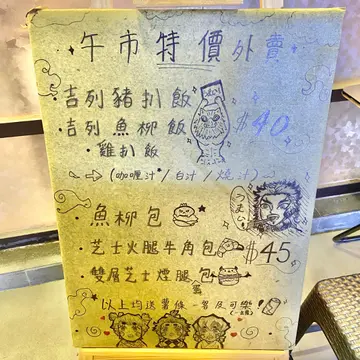 午市特價外賣
·吉列豬扒飯
·吉列魚柳飯 $40
·雞扒飯
(咖喱汁/白汁/燒汁)
·魚柳包
·芝士火腿牛角包 $45
·雙層芝士煙腿蛋包
以上均送薯條一客及可樂!